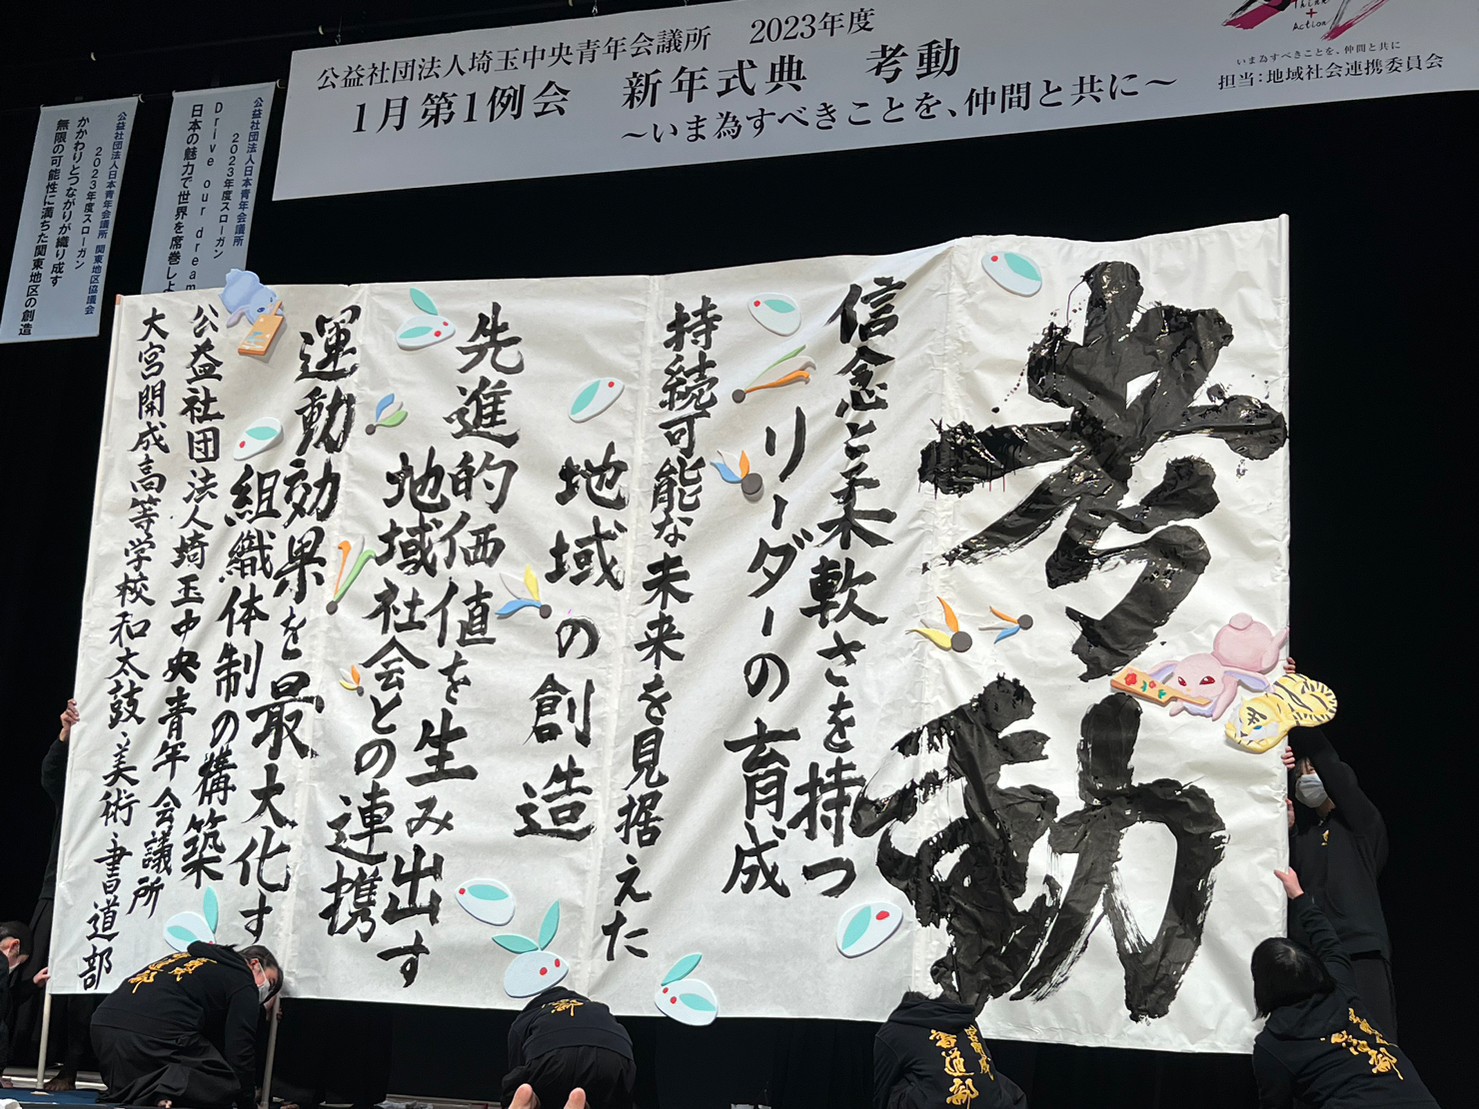 公益社団法人埼玉中央青年会議所　2023年度
1月第1例会　新年式典　考動
～いま為すべきことを、仲間と共に～
Think
+
Action
いま為すべきことを、仲間と共に
担当:地域社会連携委員会
公益社団法人日本青年会議所
2023年度スローガン
Drive our dream
日本の魅力で世界を席巻しよ
公益社団法人日本青年会議所 関東地区協議会
2023年度スローガン
かかわりとつながりが織り成す
無限の可能性に満ちた関東地区の創造
考動
信念と柔軟さを持つ
リーダーの育成
持続可能な未来を見据えた
地域の創造
先進的価値を生み出す
地域社会との連携
運動効果を最大化す
組織体制の構築
公益社団法人埼玉中央青年会議所
大宮開成高等学校和太鼓、美術、書道部
書道部